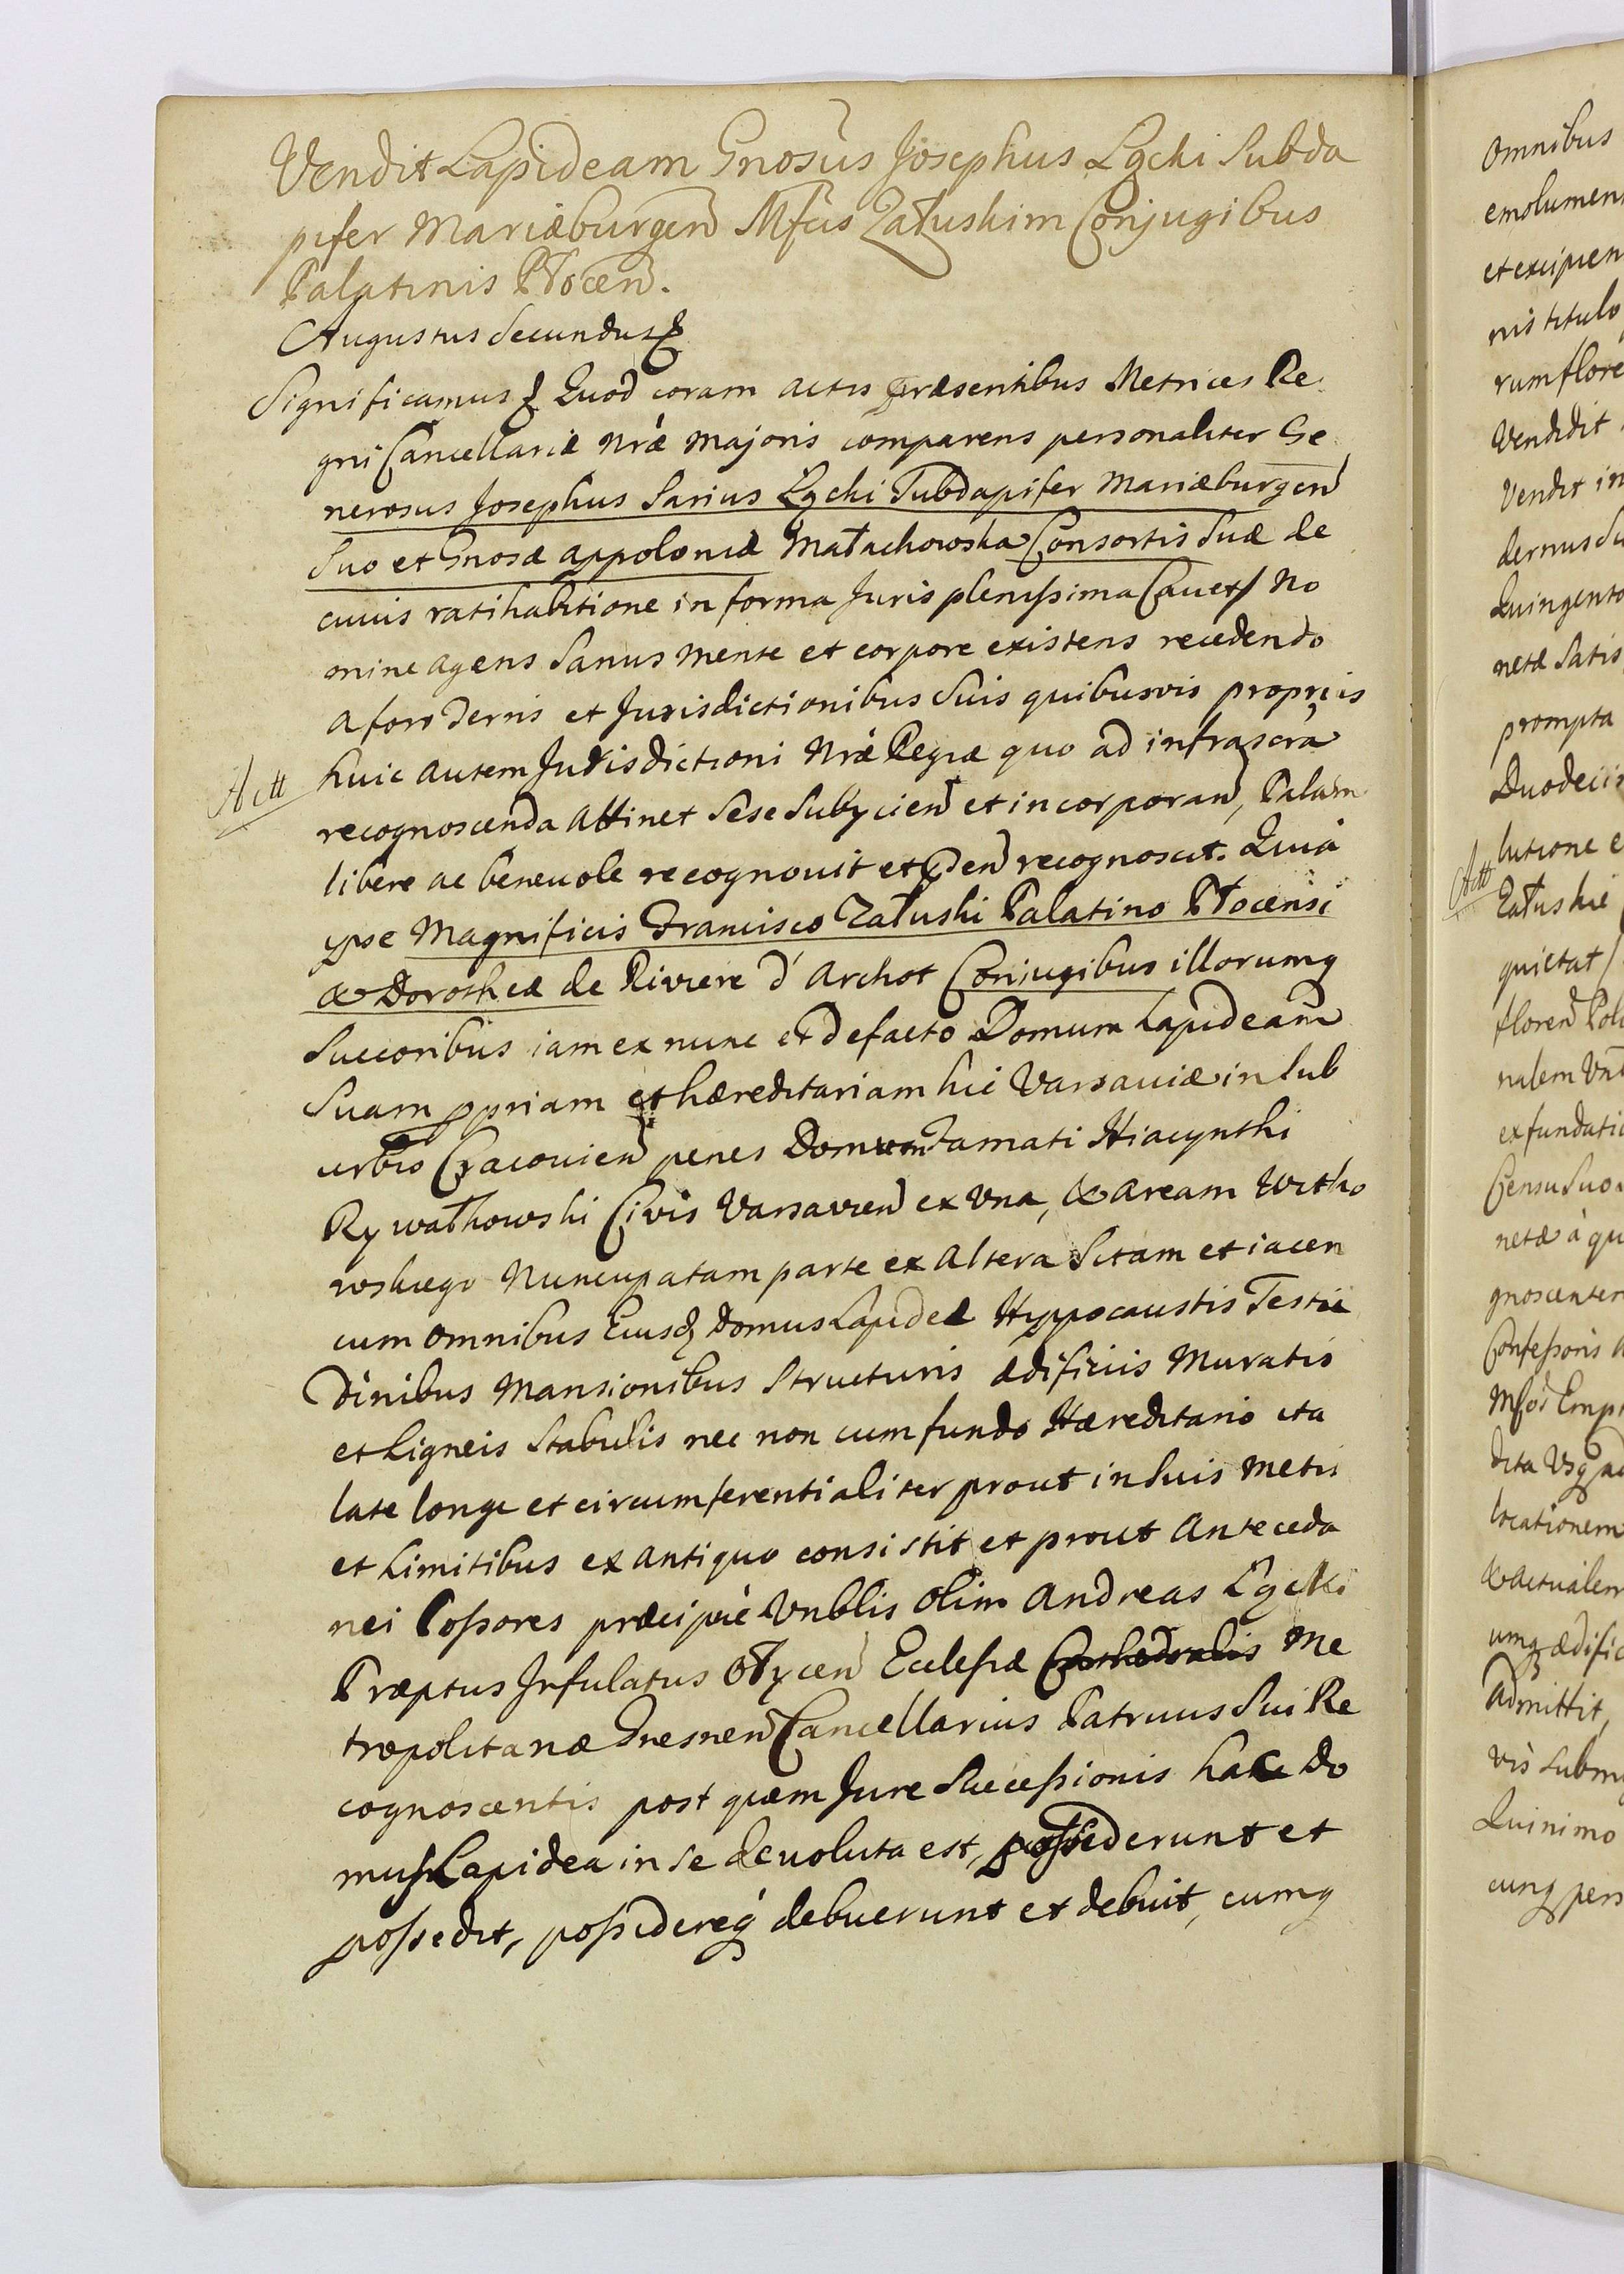 Vendit Lapideam Gnosus Josephus Łącki Subda
pifer Mariæburgen Mfcis Załuskim Conjugibus
Palatinis Płocen.
Augustus Secundus &
Significamus & Quod coram actis præsentibus Metrices Re
gni Cancellariæ nræ Majoris comparens personaliter Ge
nerosus Josephus Sarius Łącki Subdapifer Mariæburgen
Suo et Gnosæ Appoloniæ Małachowska Consortis Suæ de
cuius ratihabitione in forma Juris plenissima Cavet/ No
mine agens Sanus mente et corpore existens recedendo
a foro Terris et Jurisdictionibus Suis quibusvis propriis
Act
huic autem Jurisdictioni Nræ Regiæ quo ad infrascra
recognoscenda attinet Sese Subycien et incorporan, Palam
libere ac benevole recognovit et recognoscit. Quia
ipse Magnificis Francisco Załuski Palatino Płocensi
& Dorotheæ de Riviere d' Archot Coniugibus illorumq
Succoribus iam ex nunc et de facto Domum Lapideam
Suam ppriam et hæreditariam hic Varsaviæ in Sub
urbio Cracovien penes Domum Famati Hiacynthi
Rywałkowski Civis Varsavien ex Una, & Aream Witko
wskiego Nuncupatam parte ex altera Sitam et iacen
cum omnibus Eiusq Domus Lapideæ Hyppocaustis Testu
dinibus Mansionibus Structuris ædificiis Muratis
et Ligneis Stabulis nec non cum fundo Hæreditario ita
late longe et circumferentialiter prout in Suis metis
et Limitibus ex antiquo consistit et prout Anteceda
nei Possores præcipuè Vnblis olim Andreas Łącki
Præptus Infulatus Ołycen Ecclesiæ Cathedralis Me
tropolitanæ Gnesnen Cancellarius Patruus Sui Re
cognoscentis post quem Jure Successionis hæc Do
mus Lapidea in se devoluta est, possiderunt et
possedit, possidereq debuerunt et debuit, cumq
omnibus
emolumen
et excipien
nis titulo
rum flore
Vendidit
Vendit in
Quingento
netæ Satis
prompta
Act
lutione e
Załuskie
quietat/
floren Pol
nalem Vn
ex fundatio
Censu Suo
netæ à qu
gnoscenter
Confessoris
dita Vsq ad
locationem
& actualem
umq ædific
Admittit,
Quinimo
cunq pers